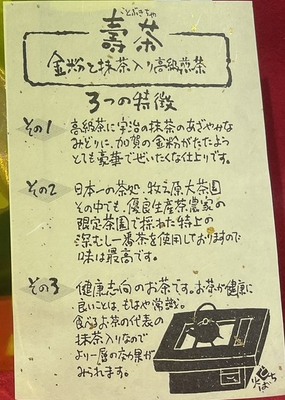 ことぶきちゃ
壽茶
金粉と抹茶入り高級煎茶
3つの特徴
その1
高級茶に宇治の抹茶のあざやかな
みどりに、加賀の金粉がただよう
とても豪華でぜいたくな仕上りです。
その2
日本一の茶処、牧之原大茶園
その中でも、優良生産茶農家の
限定茶園で採れた特上の
深むし一番茶を使用しておりますので
味は最高です。
その3
健康志向のお茶です。お茶が健康に
良いことは、もはや常識。
食べるお茶の代表の
抹茶入りなので
より一層の効果が
みられます。
火ばち